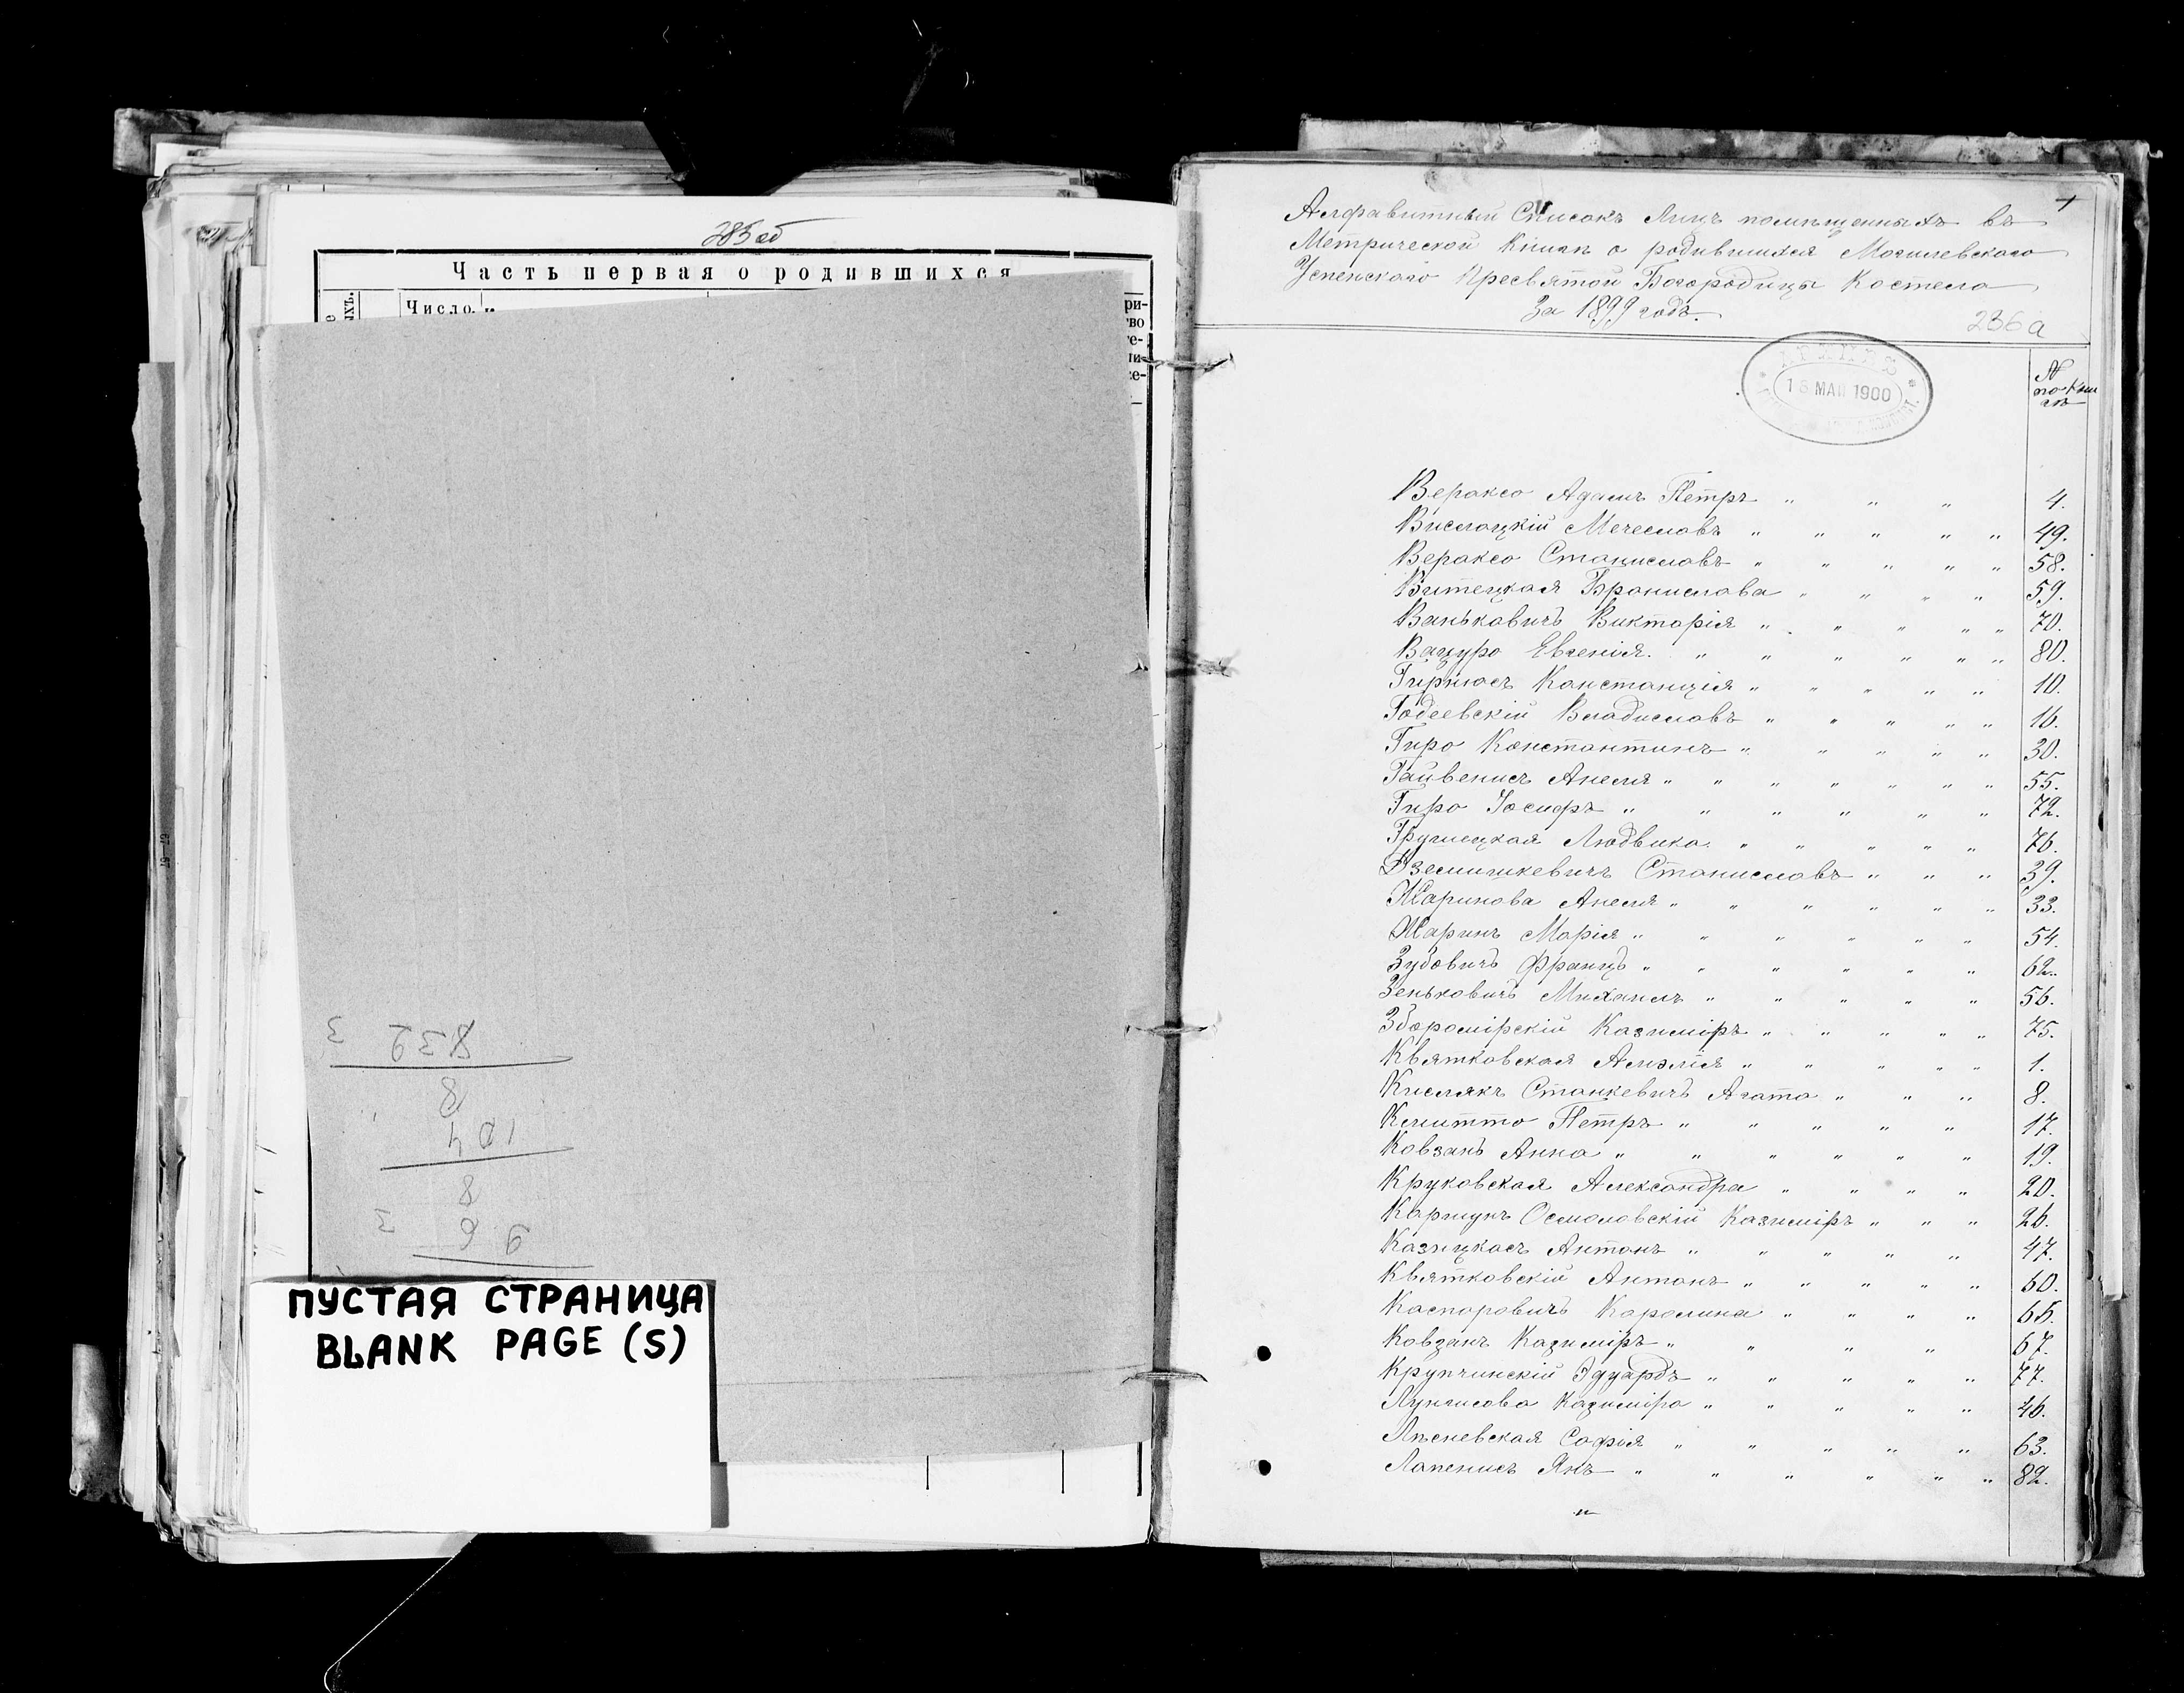 285 об
Часть первая о родившихся
Число.
ри-
во
е-
ли-
е-
832 3
8
104
8
9 6 3
ПУСТАЯ СТРАНИЦА
BLANK PAGE (S)
1
Алфавитный Списокъ Лицъ помѣщенныхъ въ
Метрической Книгѣ о родившихся Могилевскаго
Успенскаго Пресвятой Богородицы Костела
За 1899 годъ.
236 а
18 МАЦ 1900
№ по Книгѣ
Вераксо Адамъ Петръ " " " 4.
Вислоцкій Мечеславъ " " " " " 49.
Вераксо Станиславъ " " " " " 58.
Витецкая Бронислава " " " " 59.
Ваньковичъ Викторія " " " " " 70.
Вацуро Евгенія. " " " " " " 80.
Гирнюсъ Констанція " " " " " 10.
Годеевскій Владиславъ " " " " " 16.
Гиро Константинъ " " " " " 30.
Гайвенисъ Анеля " " " " " " " 55.
Гиро Іосифъ " " " " " " 72.
Грушецкая Людвика. " " " " " 76.
Дземишкевичъ Станиславъ " " " 39.
Жаринова Анеля " " " " " " 33.
Жаринъ Марія " " " " " " 54.
Зубовичъ Францъ " " " " " " 62.
Зеньковичъ Михаилъ " " " " " 56.
Збромірскій Казиміръ " " " " " 75.
Квятковская Амэлія " " " " " 1.
Кислякъ Станкевичъ Агата " " " 8.
Клитто Петръ " " " " " 17.
Ковзанъ Анна " " " " " " 19.
Круковская Александра " " " " 20.
Каршунъ Осмоловскій Казиміръ " " " 26.
Казицкасъ Антонъ " " " " " 47.
Квятковскій Антонъ " " " " " 60.
Каспоровичъ Каролина " " " " 65.
Ковзанъ Казиміръ " " " " 67.
Крупчинскій Эдуардъ " " " " " 77.
Лунгисова Казиміра " " " " " 46.
Лѣсневская Софія " " " " " 63.
Лапенисъ Янъ " " " " " " 82.